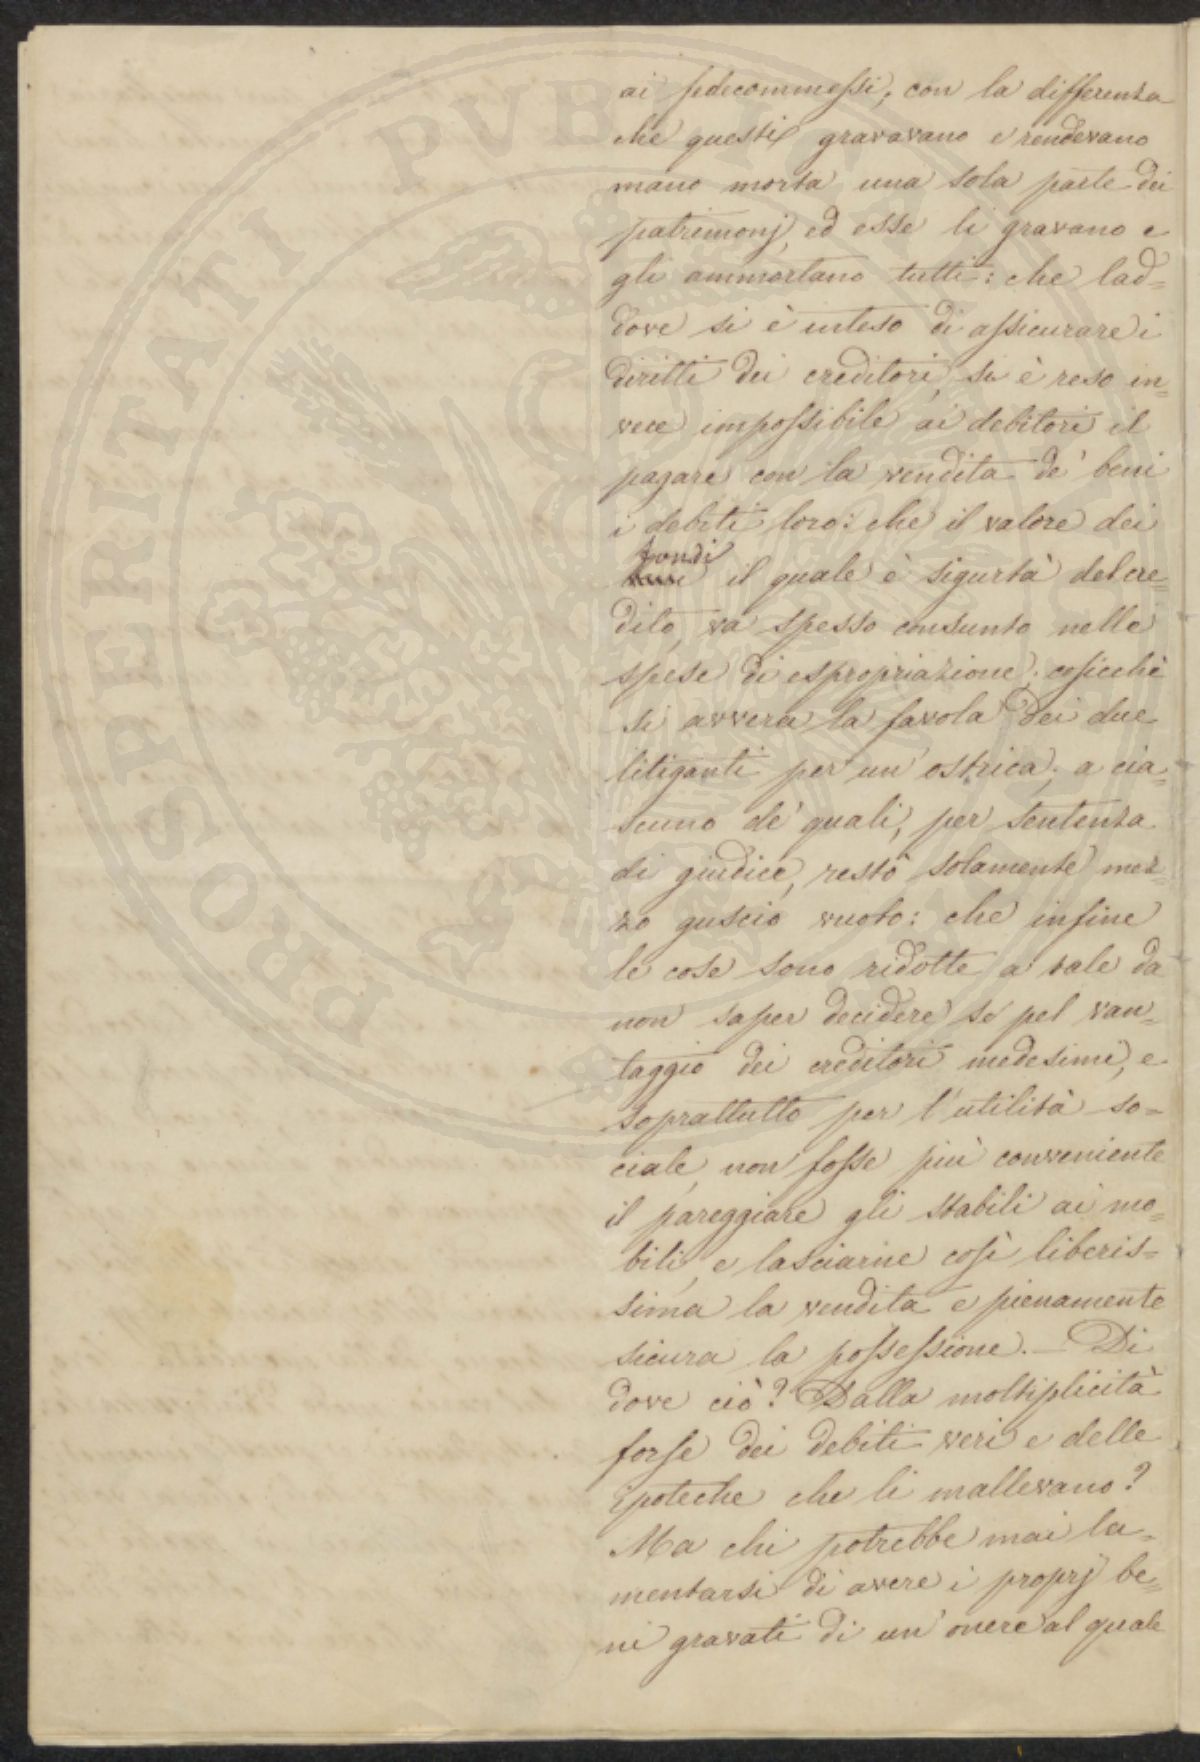 ai fedecommessi, con la differenza
che questi gravavano e rendevano
mano morta una sola parte dei
patrimonj, ed esse li gravano e
gli ammortano tutti: che lad=
dove si è inteso di assicurare i
diritti dei creditori, si è reso in=
vece impossibile ai debitori il
pagare con la vendita de' beni
i debiti loro: che il valore dei
fondi
il quale è sigurtà del cre=
dito, va spesso consunto nelle
spese di espropriazione; cosicchè
si avvera la favola dei due
litiganti per un' ostrica, a cia=
scuno de' quali, per sentenza
di giudice, restò solamente mez=
zo guscio vuoto: che infine
le cose sono ridotte a tale da
non saper decidere se pel van=
taggio dei creditori medesimi, e
soprattutto per l'utilità so=
ciale, non fosse più conveniente
il pareggiare gli stabili ai mo=
bili, e lasciarne così liberis=
sima la vendita e pienamente
sicura la possessione. — Di
dove ciò? Dalla moltiplicità
forse dei debiti veri e delle
ipoteche che li mallevano?
Ma chi potrebbe mai la=
mentarsi di avere i proprj be=
ni gravati di un' onere al quale
PROSPERITATI PVBLICAE